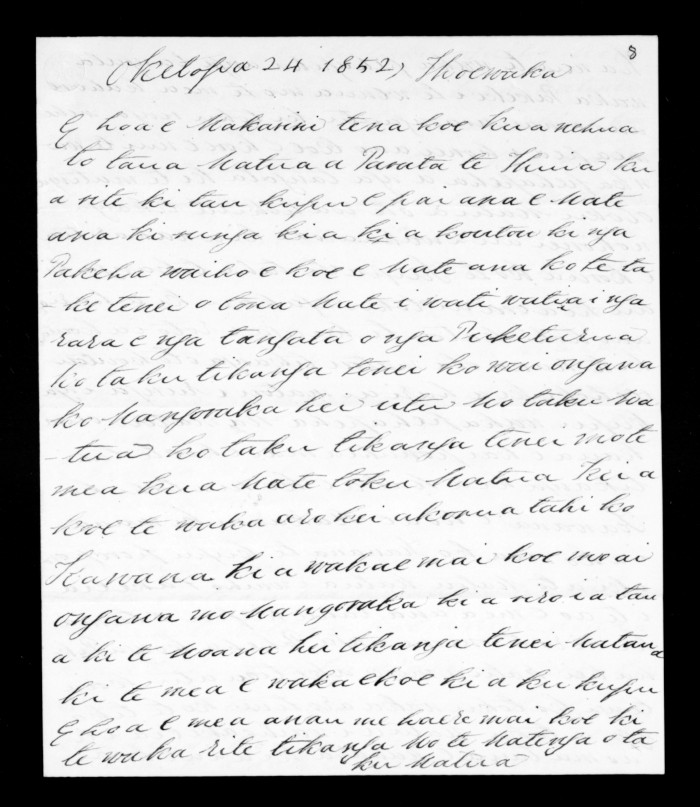 8
Oketopa 24 1852, Thoewaka
E hoa e Makarini tena koe kua nehua
to taua Matua a Parata te Ihuia ku
a rite ki tau kupu e pai ana e Mate
ana ki runga ki a ki a koutou ki nga
Pakeha waiho e koe e Mate ana ko te ta
ke tenei o tona Mate i wati watia i nga
rara e nga tangata o nga Puketurua
Ko taku tikanga tenei ko wai ongawa
ko Mangoraka hei utu Mo taku Ma
-tua ko taku tikanga tenei mo te
mea kua Mate toku Matua Kei a
koe te waka aro kei akorua tahi ko
Kawana ki a wakae mai koe mo ai
ongawa mo Mangoraka ki a riro i a tau
a ki te Moana hei tikanga tenei Matau
ki te mea e wakaekoe ki a ku kupu
E hoa e mea anau me haere mai koe ki
te waka rite tikanga Mo te Matenga o ta
ku Matua